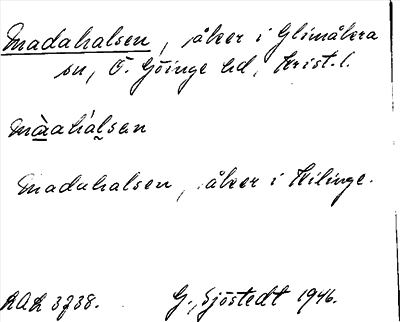 Madahalsen, åker i Glimåkra
sn, Ö. Göinge hd, Krist. l.
màahálsen
Madahalsen, åker i Hilinge.
G. Sjöstedt 1946.